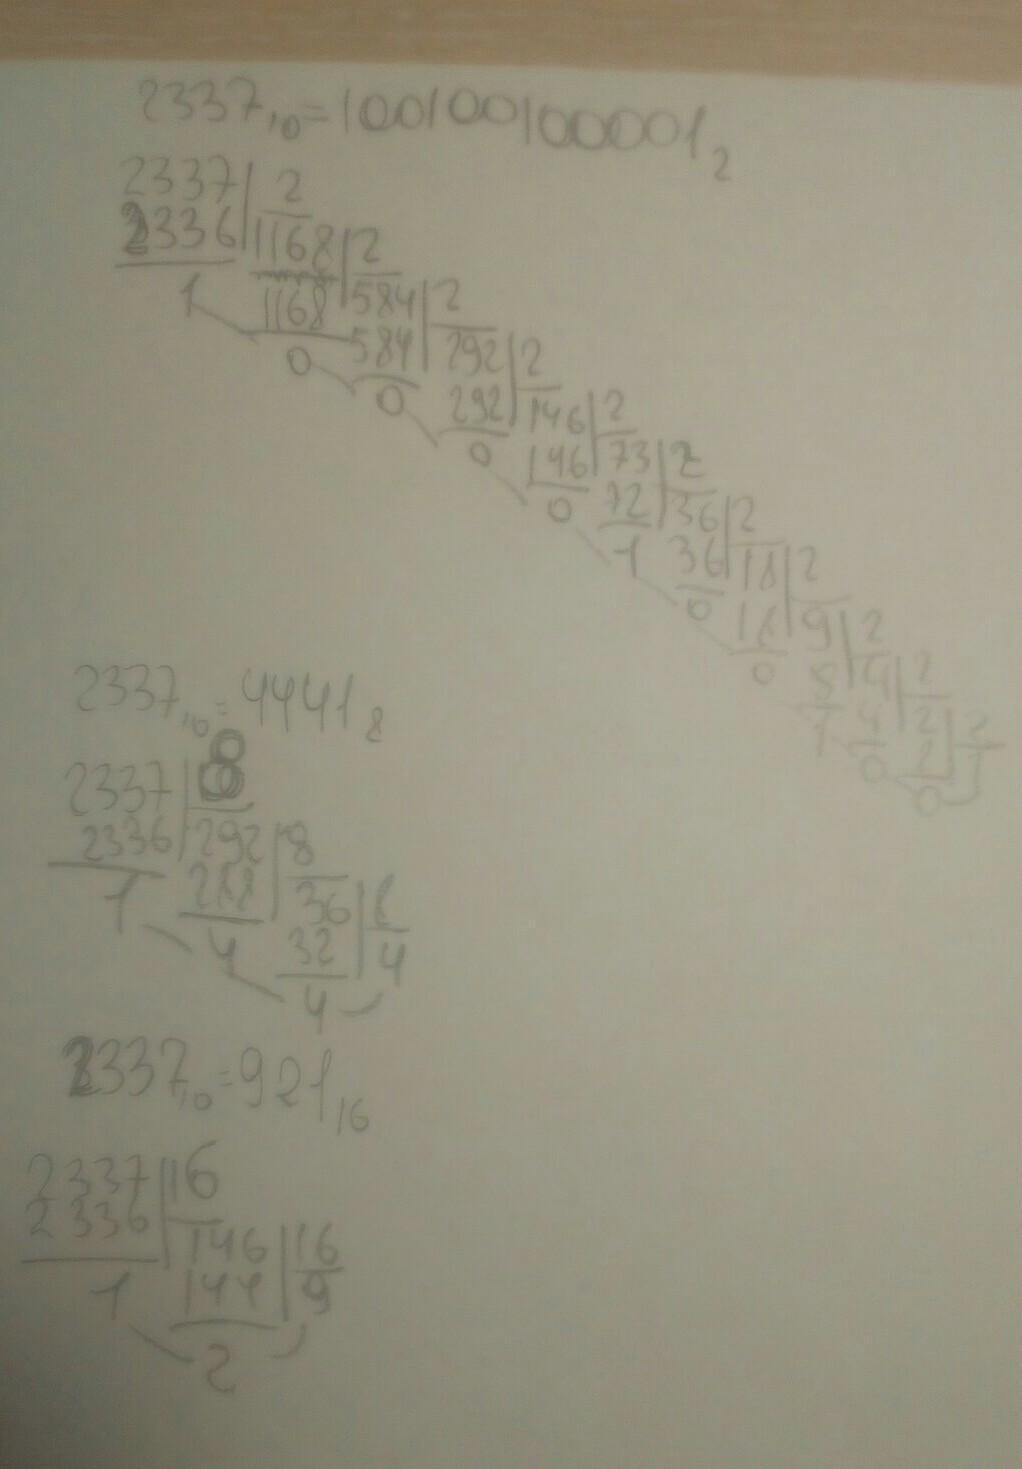 2337₁₀=100100100001₂
2337 2
2336 1168 2
1 1168 584 2
0 584 292 2
0 292 146 2
0 146 73 2
0 72 36 2
1 36 18 2
0 18 9 2
0 8 4 2
1 4 2 2
0 2 1
0
2337₁₀=4441₈
2337 8
2336 292 8
1 288 36 8
4 32 4
4
2337₁₀=921₁₆
2337 16
2336 146 16
1 144 9
2